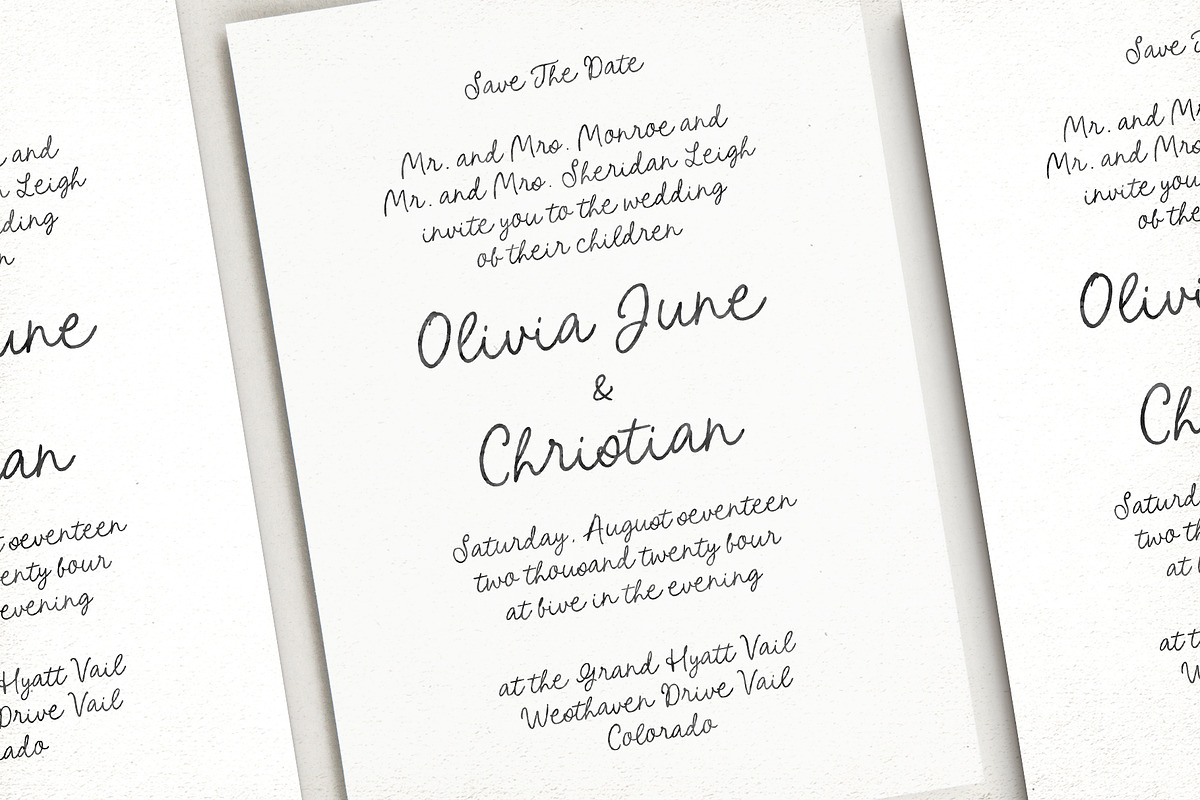 Save The Date
Mr. and Mrs. Monroe and
Mr. and Mrs. Sheridan Leigh
invite you to the wedding
of their children
Olivia June
&
Christian
Saturday, August seventeen
two thousand twenty four
at five in the evening
at the Grand Hyatt Vail
Westhaven Drive Vail
Colorado
and
Leigh
une
an
seventeen
four
evening
Hyatt Vail
Drive Vail
Save
Mr. and
Mr. and Mrs
invite you
of the
Ch
at